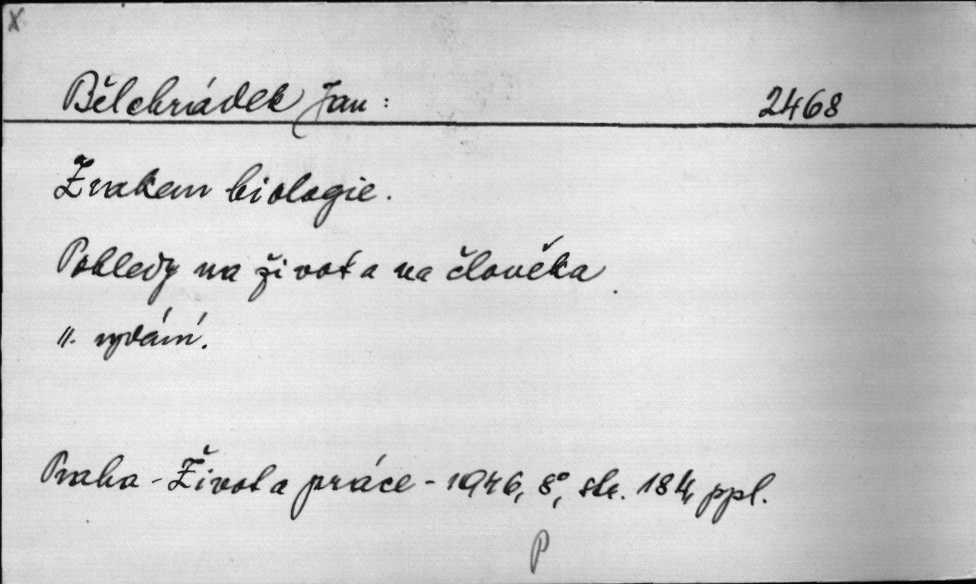 x
Bělehrádek Jan: 2468
Zrakem biologie.
Pohledy na život a na člověka
II. vydání.
Praha - Život a práce - 1946, 8°, str. 184, ppl.
P